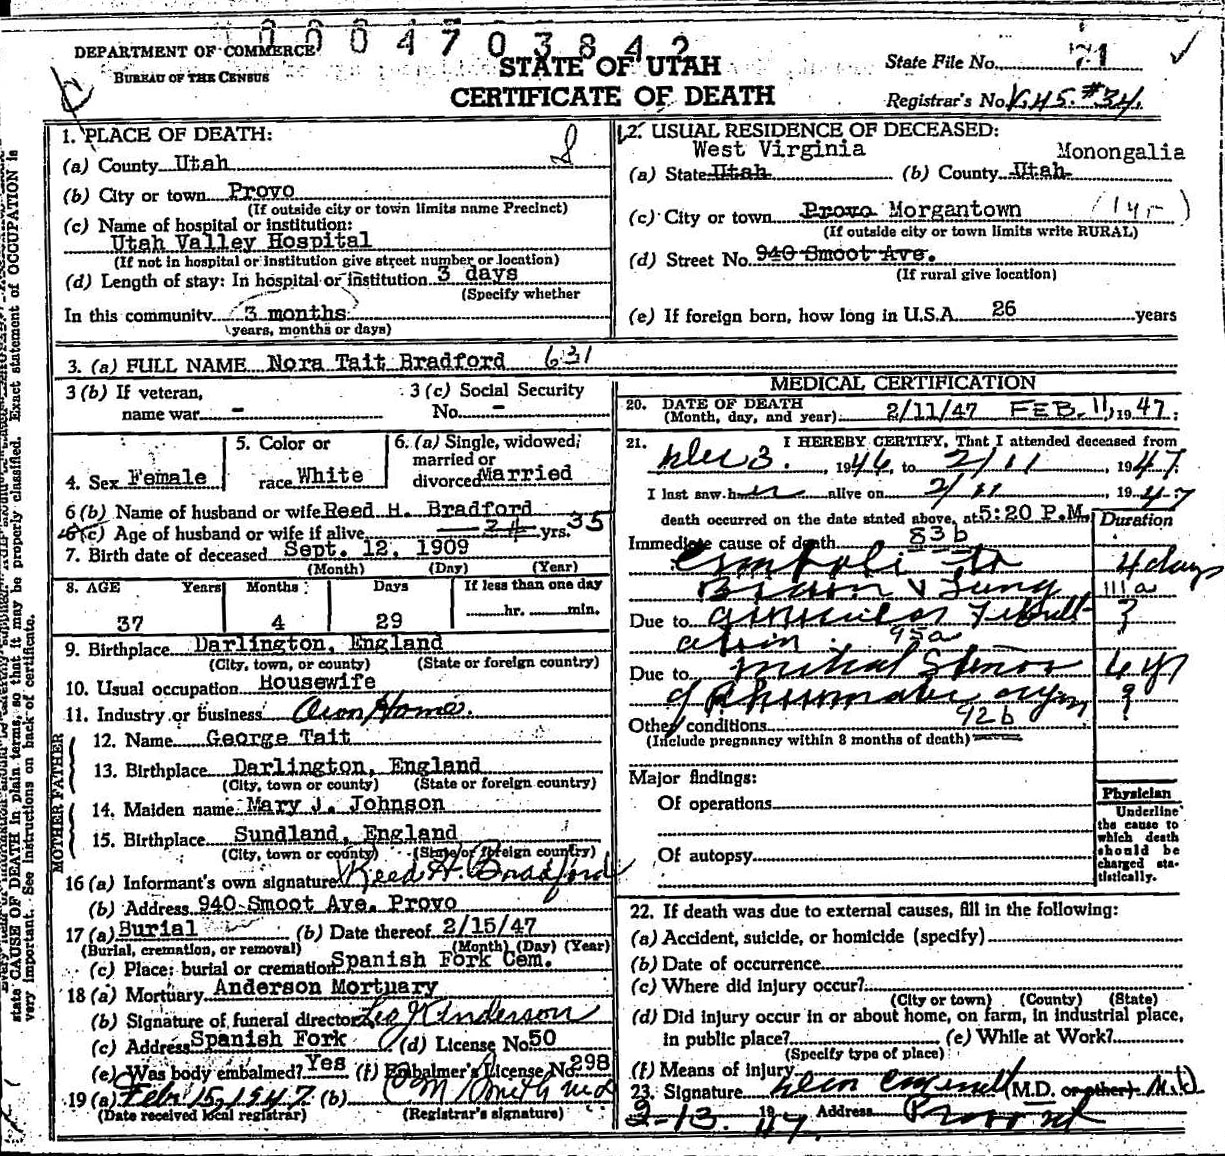 0004703842
DEPARTMENT OF COMMERCE
BUREAU OF THE CENSUS
STATE OF UTAH
CERTIFICATE OF DEATH
State File No. 71
Registrar's No. #34
1. PLACE OF DEATH:
(a) County Utah
(b) City or town Provo
(If outside city or town limits name Precinct)
(c) Name of hospital or institution:
Utah Valley Hospital
(If not in hospital or institution give street number or location)
(d) Length of stay: In hospital or institution 3 days
(Specify whether
In this community 3 months
years, months or days)
2. USUAL RESIDENCE OF DECEASED:
West Virginia Monongalia
(a) State Utah (b) County Utah
(c) City or town Provo Morgantown (1 yr)
(If outside city or town limits write RURAL)
(d) Street No. 940 Smoot Ave.
(If rural give location)
(e) If foreign born, how long in U.S.A. 26 years
3. (a) FULL NAME Nora Tait Bradford 631
3 (b) If veteran,
name war -
3 (c) Social Security
No. -
4. Sex Female
5. Color or
race White
6. (a) Single, widowed,
married or
divorced Married
6 (b) Name of husband or wife Reed H. Bradford
6 (c) Age of husband or wife if alive 24 yrs. 35
7. Birth date of deceased Sept. 12, 1909
(Month) (Day) (Year)
8. AGE Years Months Days If less than one day
37 4 29 hr. min.
9. Birthplace Darlington, England
(City, town, or county) (State or foreign country)
10. Usual occupation Housewife
11. Industry or business Own Home.
FATHER
12. Name George Tait
13. Birthplace Darlington, England
(City, town or county) (State or foreign country)
MOTHER
14. Maiden name Mary J. Johnson
15. Birthplace Sundland, England
(City, town or county) (State or foreign country)
16 (a) Informant's own signature Reed H. Bradford
(b) Address 940 Smoot Ave. Provo
17 (a) Burial (b) Date thereof 2/15/47
(Burial, cremation, or removal) (Month) (Day) (Year)
(c) Place; burial or cremation Spanish Fork Cem.
18 (a) Mortuary Anderson Mortuary
(b) Signature of funeral director Anderson
(c) Address Spanish Fork (d) License No. 50
(e) Was body embalmed? Yes (f) Embalmer's License No. 298
19 (a) Feb. 15, 1947 (b) Smith MD
(Date received local registrar) (Registrar's signature)
MEDICAL CERTIFICATION
20. DATE OF DEATH
(Month, day, and year) 2/11/47 FEB. 11, 1947.
21. I HEREBY CERTIFY, That I attended deceased from
Dec 3, 1946, to 2/11, 1947
I last saw her alive on 2/11, 1947
death occurred on the date stated above, at 5:20 P.M.
Duration
Immediate cause of death 83b
Emboli to 4 days
Brain & Lung 111a
Due to auricular ?
95a
Due to mitral Stenosis
of Rheumatic origin ?
Other conditions 92b
(Include pregnancy within 8 months of death)
Major findings:
Of operations
Of autopsy
Physician
Underline
the cause to
which death
should be
charged sta-
tistically.
22. If death was due to external causes, fill in the following:
(a) Accident, suicide, or homicide (specify)
(b) Date of occurrence
(c) Where did injury occur?
(City or town) (County) (State)
(d) Did injury occur in or about home, on farm, in industrial place,
in public place? (e) While at Work?
(Specify type of place)
(f) Means of injury
23. Signature (M.D. or other) M.D
2-13 1947. Address Provo Ut
state CAUSE OF DEATH in plain terms, so that it may be properly classified. Exact statement of OCCUPATION is
very important. See instructions on back of certificate.